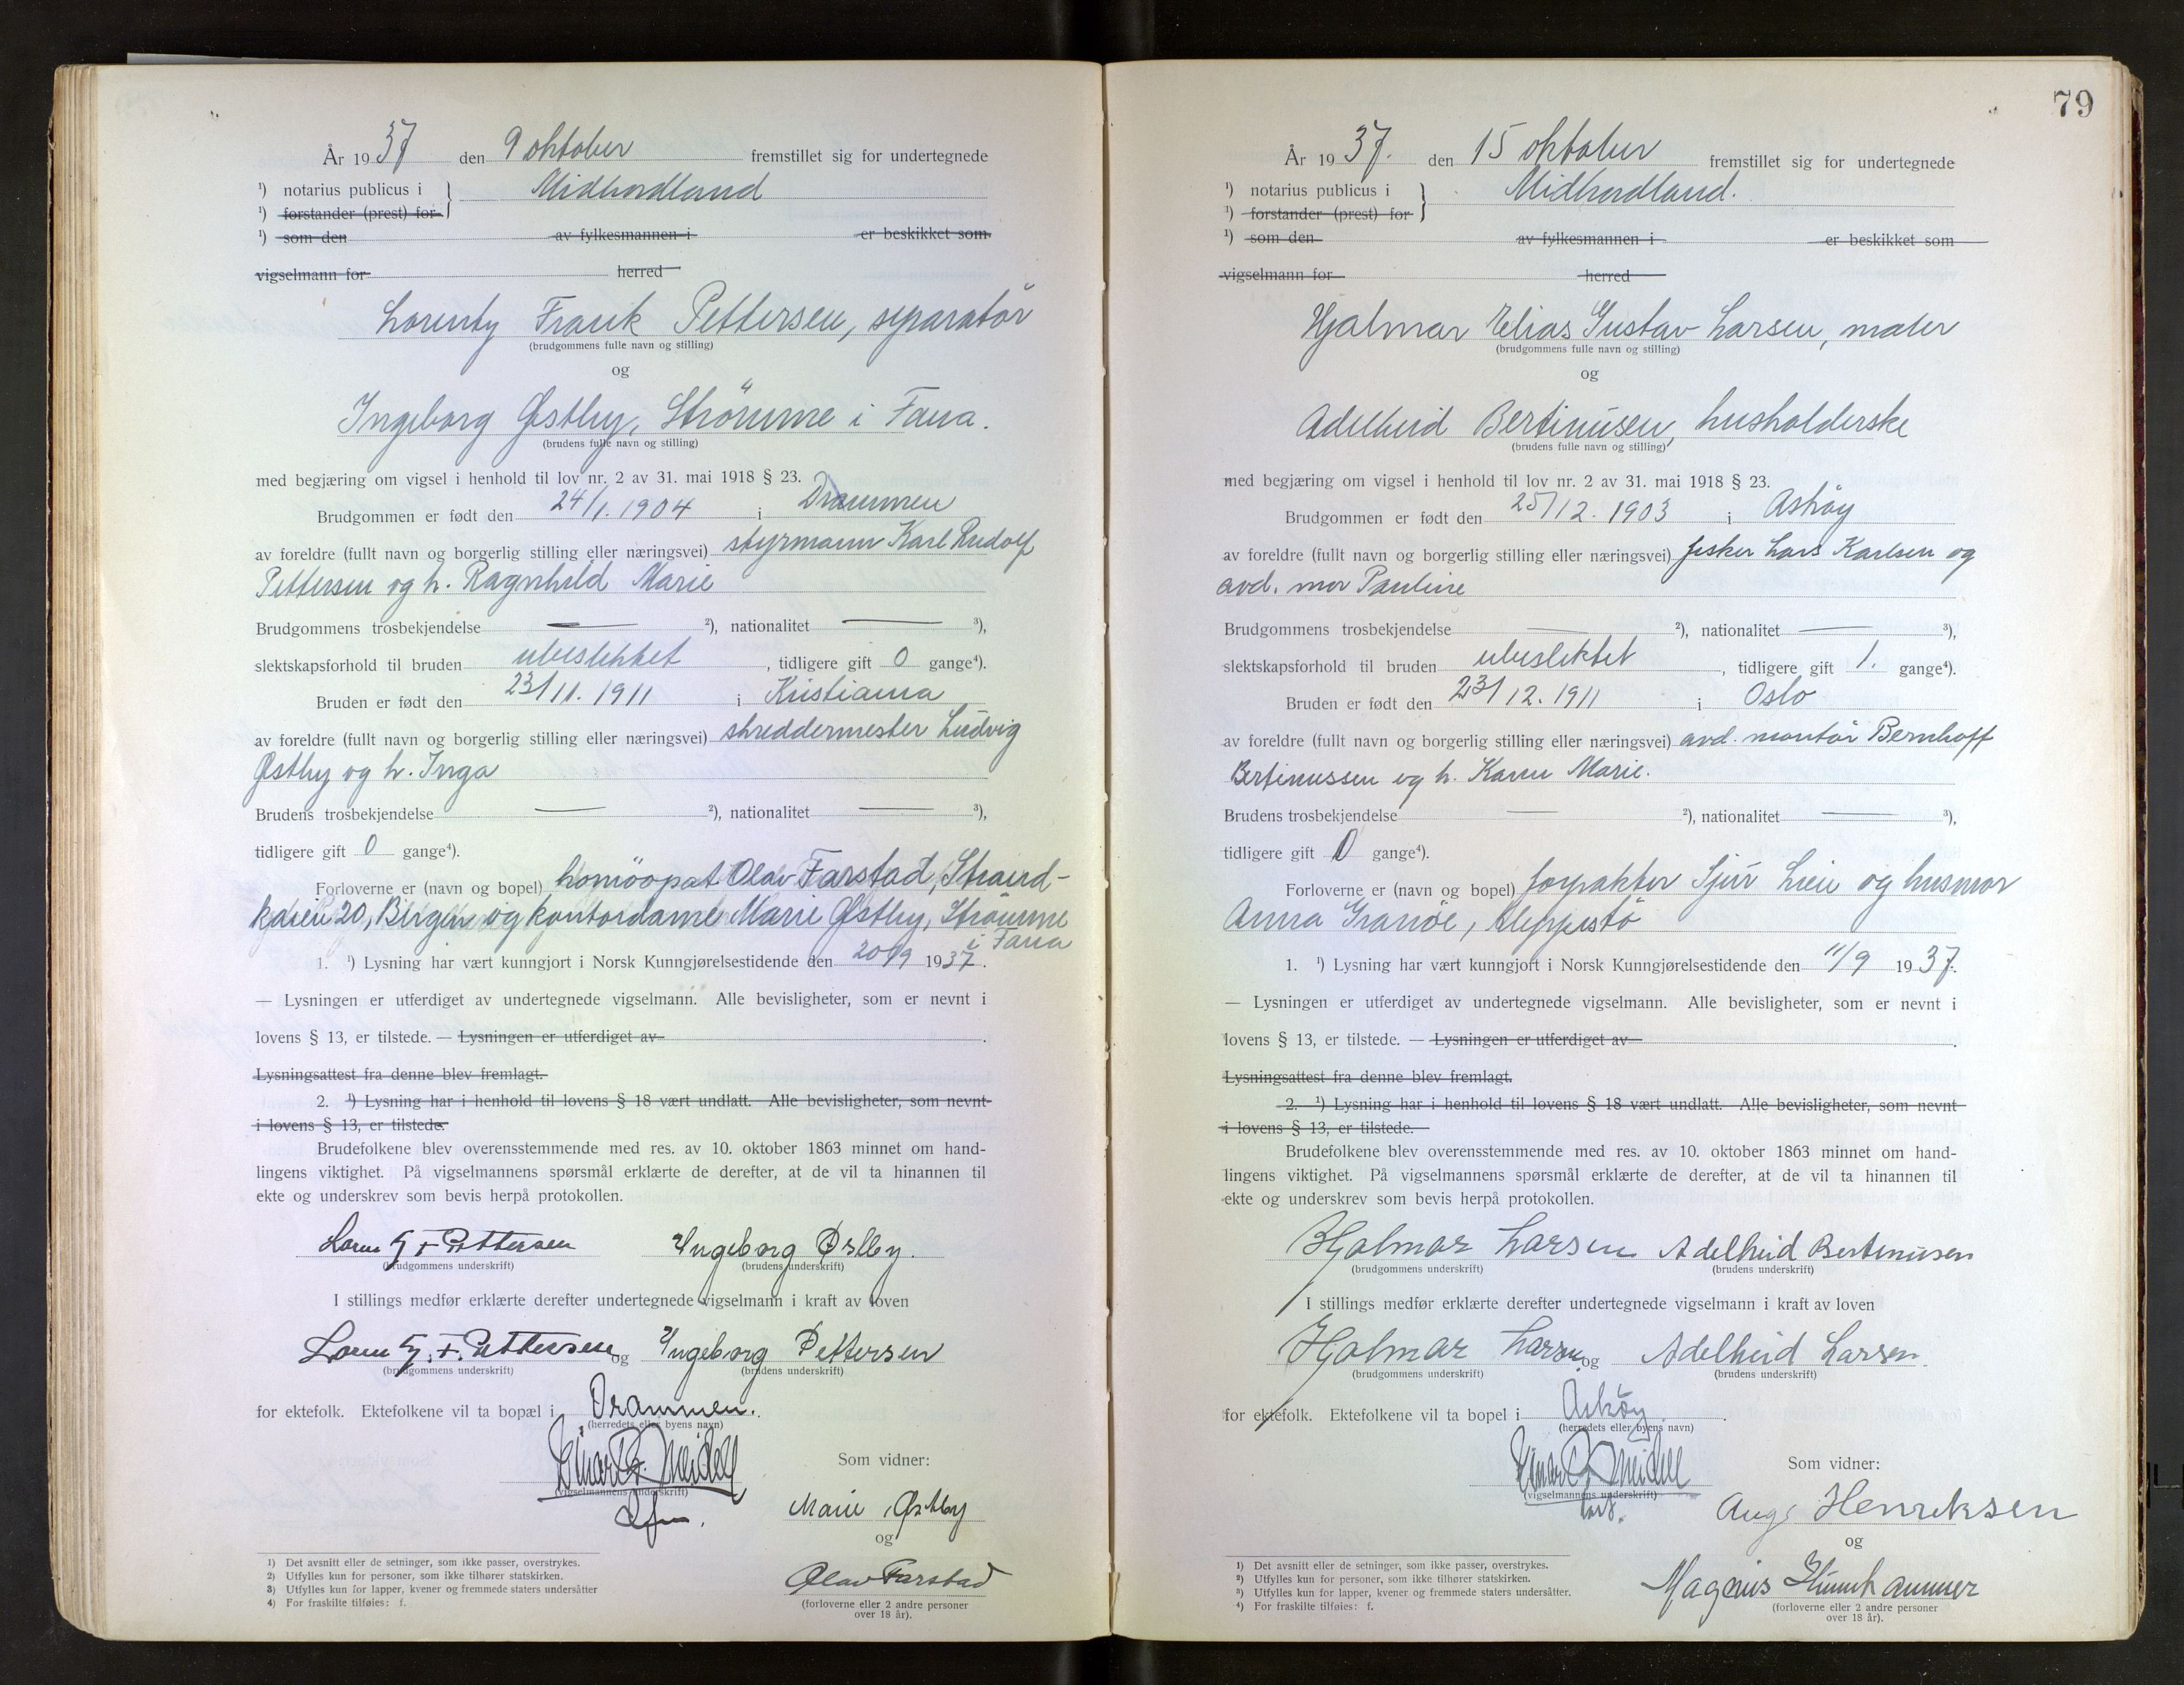 År 1937 den 9 oktober fremstillet sig for undertegnede
¹) notarius publicus i } Midhordland
¹) forstander (prest) for
¹) som den av fylkesmannen i er beskikket som
vigselmann for herred
Frank Pettersen, separatör
(brudgommens fulle navn og stilling)
og
Ingeborg Østby, Strömme i Fana.
(brudens fulle navn og stilling)
med begjæring om vigsel i henhold til lov nr. 2 av 31. mai 1918 § 23.
Brudgommen er født den 24/1. 1904 i Drammen
av foreldre (fullt navn og borgerlig stilling eller næringsvei) styrmann Karl Rudolf
Pettersen og h. Ragnhild Marie
Brudgommens trosbekjendelse — ²), nationalitet — ³),
slektskapsforhold til bruden ubeslektet, tidligere gift 0 gange⁴).
Bruden er født den 23/11. 1911 i Kristiania
av foreldre (fullt navn og borgerlig stilling eller næringsvei) skreddermester Ludvig
Østby og h. Inga
Brudens trosbekjendelse — ²), nationalitet — ³),
tidligere gift 0 gange⁴).
Forloverne er (navn og bopel) homöopat Olav Farstad, Strand-
kaien 20, Bergen og kontordame Marie Østby, Strömme
i Fana
1. ¹) Lysning har vært kunngjort i Norsk Kunngjørelsestidende den 20/9 1937.
— Lysningen er utferdiget av undertegnede vigselmann. Alle bevisligheter, som er nevnt i
lovens § 13, er tilstede. — Lysningen er utferdiget av .
Lysningsattest fra denne blev fremlagt.
2. ¹) Lysning har i henhold til lovens § 18 vært undlatt. Alle bevisligheter, som nevnt
i lovens § 13, er tilstede.
Brudefolkene blev overensstemmende med res. av 10. oktober 1863 minnet om hand-
lingens viktighet. På vigselmannens spørsmål erklærte de derefter, at de vil ta hinannen til
ekte og underskrev som bevis herpå protokollen.
F Pettersen Ingeborg Østby.
(brudgommens underskrift) (brudens underskrift)
I stillings medfør erklærte derefter undertegnede vigselmann i kraft av loven
F. Pettersen og Ingeborg Pettersen
(brudgommens underskrift) (brudens underskrift)
for ektefolk. Ektefolkene vil ta bopæl i Drammen.
(herredets eller byens navn)
Einar Meidell
(vigselmannens underskrift)
Som vidner:
Marie Østby
og
Olav Farstad
(forloverne eller 2 andre personer
over 18 år).
1) Det avsnitt eller de setninger, som ikke passer, overstrykes.
2) Utfylles kun for personer, som ikke tilhører statskirken.
3) Utfylles kun for lapper, kvener og fremmede staters undersåtter
4) For fraskilte tilføies: f.
79
År 1937. den 15 oktober fremstillet sig for undertegnede
¹) notarius publicus i } Midhordland.
¹) forstander (prest) for
¹) som den av fylkesmannen i er beskikket som
vigselmann for herred
Hjalmar Elias Gustav Larsen, maler
(brudgommens fulle navn og stilling)
og
Adelheid Bertinusen, husholderske
(brudens fulle navn og stilling)
med begjæring om vigsel i henhold til lov nr. 2 av 31. mai 1918 § 23.
Brudgommen er født den 25/12. 1903 i Askøy
av foreldre (fullt navn og borgerlig stilling eller næringsvei) fisker Lars Karlsen og
avd. mor Pauline
Brudgommens trosbekjendelse — ²), nationalitet — ³),
slektskapsforhold til bruden ubeslektet, tidligere gift 1. gange⁴).
Bruden er født den 23/12. 1911 i Oslo
av foreldre (fullt navn og borgerlig stilling eller næringsvei) avd. montör Bernhoff
Bertinussen og h. Karen Marie.
Brudens trosbekjendelse — ²), nationalitet — ³),
tidligere gift 0 gange⁴).
Forloverne er (navn og bopel) forpakter Sjur Lien og husmor
Anna Granöe, Kleppestö
1. ¹) Lysning har vært kunngjort i Norsk Kunngjørelsestidende den 11/9 1937.
— Lysningen er utferdiget av undertegnede vigselmann. Alle bevisligheter, som er nevnt i
lovens § 13, er tilstede. — Lysningen er utferdiget av .
Lysningsattest fra denne blev fremlagt.
2. ¹) Lysning har i henhold til lovens § 18 vært undlatt. Alle bevisligheter, som nevnt
i lovens § 13, er tilstede.
Brudefolkene blev overensstemmende med res. av 10. oktober 1863 minnet om hand-
lingens viktighet. På vigselmannens spørsmål erklærte de derefter, at de vil ta hinannen til
ekte og underskrev som bevis herpå protokollen.
Hjalmar Larsen Adelheid Bertinusen
(brudgommens underskrift) (brudens underskrift)
I stillings medfør erklærte derefter undertegnede vigselmann i kraft av loven
Hjalmar Larsen og Adelheid Larsen.
(brudgommens underskrift) (brudens underskrift)
for ektefolk. Ektefolkene vil ta bopel i Askøy.
(herredets eller byens navn)
Einar Meidell
(vigselmannens underskrift)
Som vidner:
Aug. Henriksen
og
Magnus
(forloverne eller 2 andre personer
over 18 år).
1) Det avsnitt eller de setninger, som ikke passer, overstrykes.
2) Utfylles kun for personer, som ikke tilhører statskirken.
3) Utfylles kun for lapper, kvener og fremmede staters undersåtter.
4) For fraskilte tilføies: f.